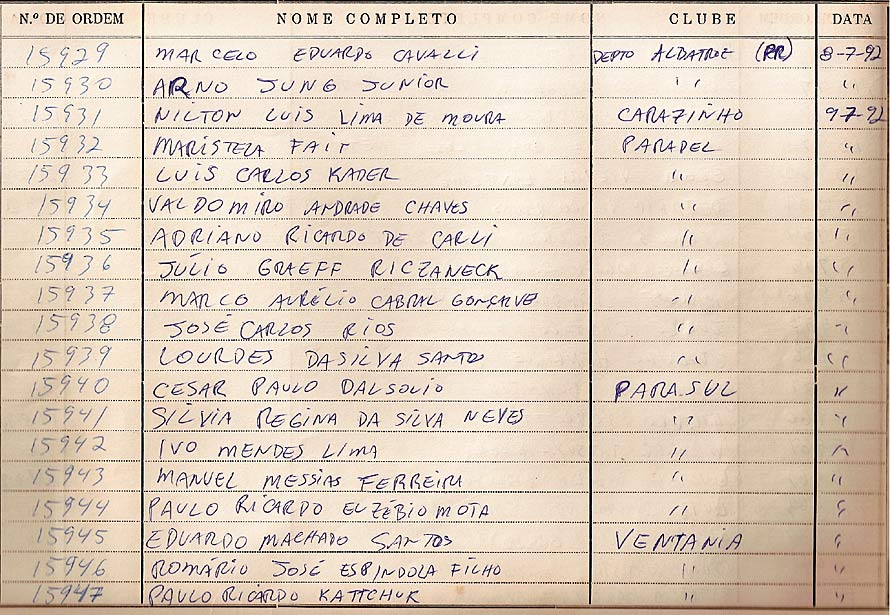 N.º DE ORDEM NOME COMPLETO CLUBE DATA
15929 MARCELO EDUARDO CAVALLI DEPTO ALBATROZ (PR) 8-7-92
15930 ARNO JUNG JUNIOR " "
15931 NILTON LUIS LIMA DE MOURA CARAZINHO 9-7-92
15932 MARISTELA FAIT PARADEL "
15933 LUIS CARLOS KADER " "
15934 VALDOMIRO ANDRADE CHAVES " "
15935 ADRIANO RICARDO DE CARLI " "
15936 JÚLIO GRAEFF RICZANECK " "
15937 MARCO AURÉLIO CABRAL GONÇALVES " "
15938 JOSÉ CARLOS RIOS " "
15939 LOURDES DA SILVA SANTOS " "
15940 CESAR PAULO DALSOLIO PARASUL "
15941 SILVIA REGINA DA SILVA NEVES " "
15942 IVO MENDES LIMA " "
15943 MANUEL MESSIAS FERREIRA " "
15944 PAULO RICARDO EUZÉBIO MOTA " "
15945 EDUARDO MACHADO SANTOS VENTANIA "
15946 ROMÁRIO JOSÉ ESPINDOLA FILHO " "
15947 PAULO RICARDO KATTCHUK " "